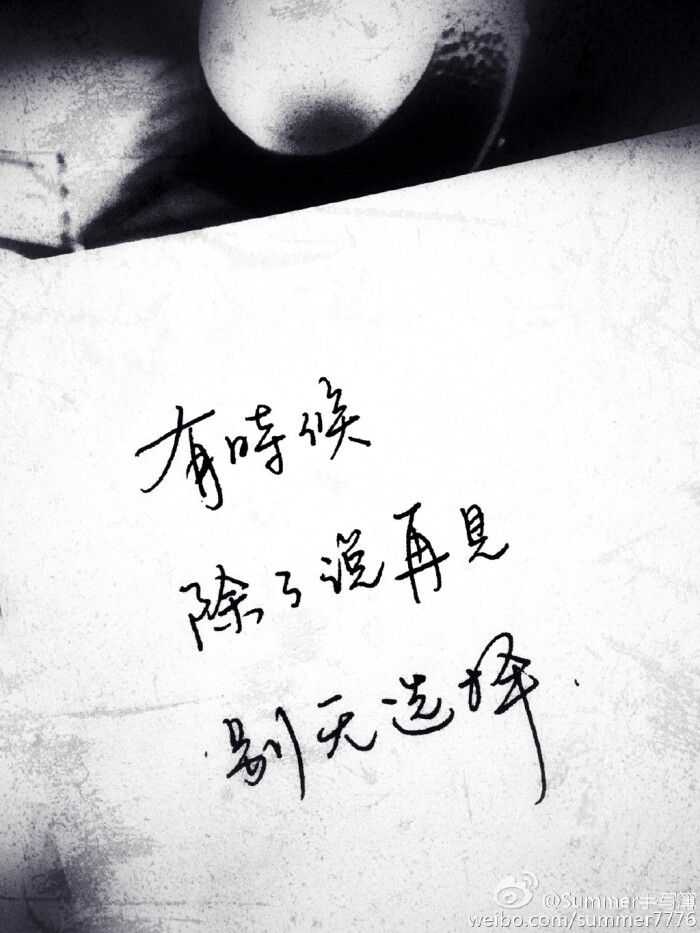 有時候
除了说再見
别无选择.
@Summer手写簿
weibo.com/summer7776